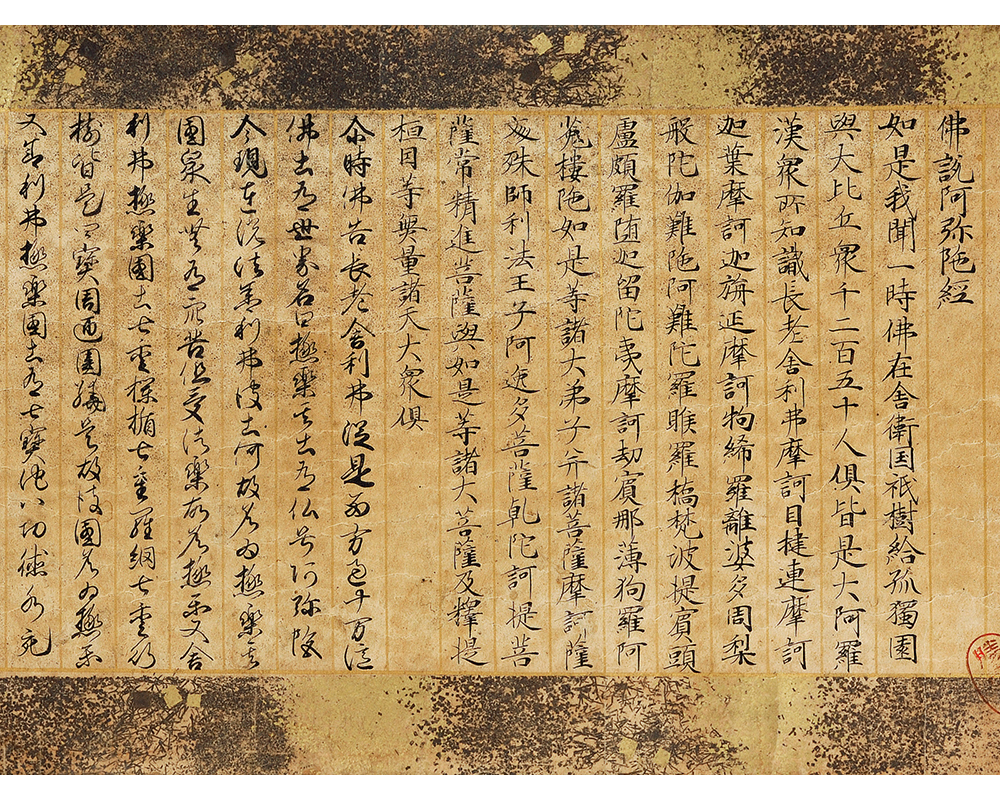 佛説阿弥陁経
如是我聞一時佛在舎衛国祇樹給孤獨園
與大比丘衆千二百五十人俱皆是大阿羅
漢衆所知識長老舎利弗摩訶目揵連摩訶
迦葉摩訶迦旃延摩訶拘絺羅離婆多周梨
般陀伽難陁阿難陀羅睺羅憍梵波提賓頭
盧頗羅堕迦留陀夷摩訶劫賓那薄狗羅阿
㝹樓陁如是等諸大弟子并諸菩薩摩訶薩
文殊師利法王子阿逸多菩薩乹陀訶提菩
薩常精進菩薩與如是等諸大菩薩及釋提
桓因等無量諸天大衆俱
尒時佛告長老舎利弗從是西方過十万億
佛土有世界名曰極樂其土有仏号阿弥陀
今現在説法舎利弗彼土何故名為極樂其
國衆生無有衆苦但受諸樂故名極樂又舎
利弗極樂國土七重欄楯七重羅網七重行
樹皆是四寶周迊圍繞是故彼國名為極樂
又舎利弗極樂國土有七寶池八功徳水充